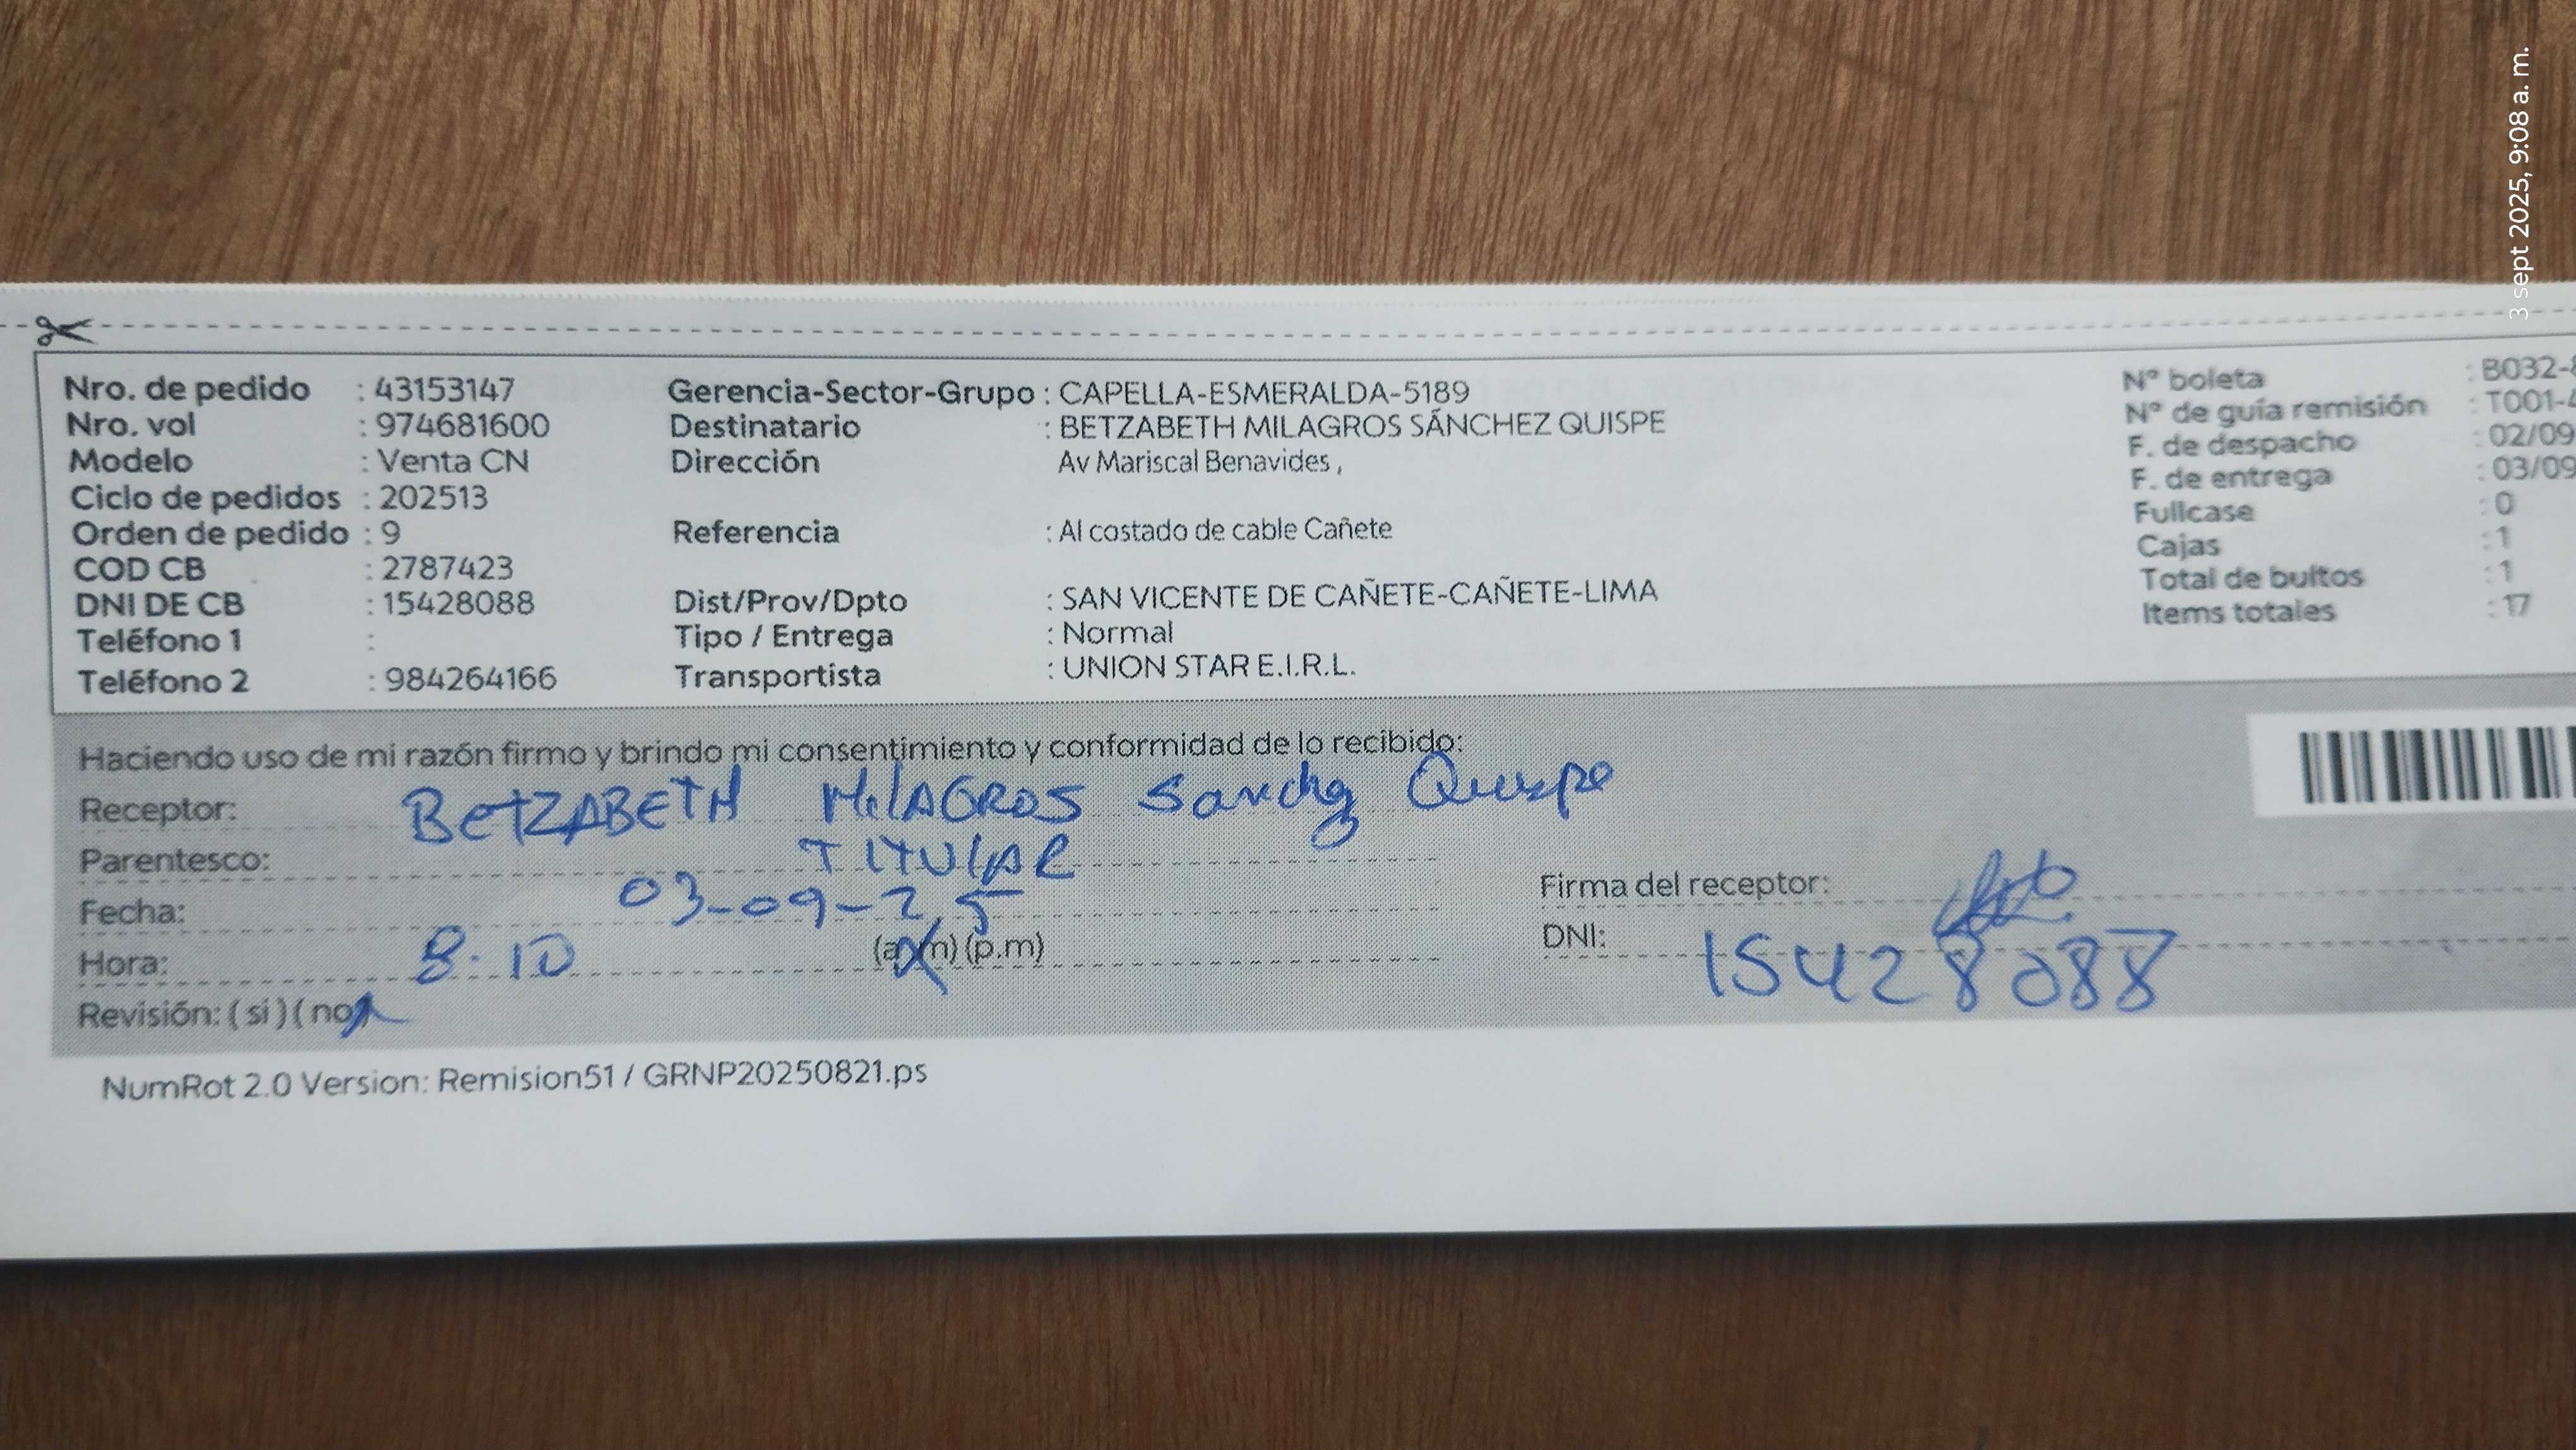 3 sept 2025, 9:08 a. m.
Nro. de pedido : 43153147
Nro. vol : 974681600
Modelo : Venta CN
Ciclo de pedidos : 202513
Orden de pedido : 9
COD CB : 2787423
DNI DE CB : 15428088
Teléfono 1 :
Teléfono 2 : 984264166
Gerencia-Sector-Grupo : CAPELLA-ESMERALDA-5189
Destinatario : BETZABETH MILAGROS SÁNCHEZ QUISPE
Dirección Av Mariscal Benavides ,
Referencia : Al costado de cable Cañete
Dist/Prov/Dpto : SAN VICENTE DE CAÑETE-CAÑETE-LIMA
Tipo / Entrega : Normal
Transportista : UNION STAR E.I.R.L.
Nº boleta : B032-
Nº de guía remisión : T001-
F. de despacho : 02/09
F. de entrega : 03/09
Fullcase : 0
Cajas : 1
Total de bultos : 1
Items totales : 17
Haciendo uso de mi razón firmo y brindo mi consentimiento y conformidad de lo recibido:
Receptor: BETZABETH MILAGROS Sanchez Quispe
Parentesco: TITULAR
Fecha: 03-09-25
Hora: 8:10 (a.m) (p.m)
Revisión: ( si ) ( no )
Firma del receptor:
DNI: 15428088
NumRot 2.0 Version: Remision51 / GRNP20250821.ps